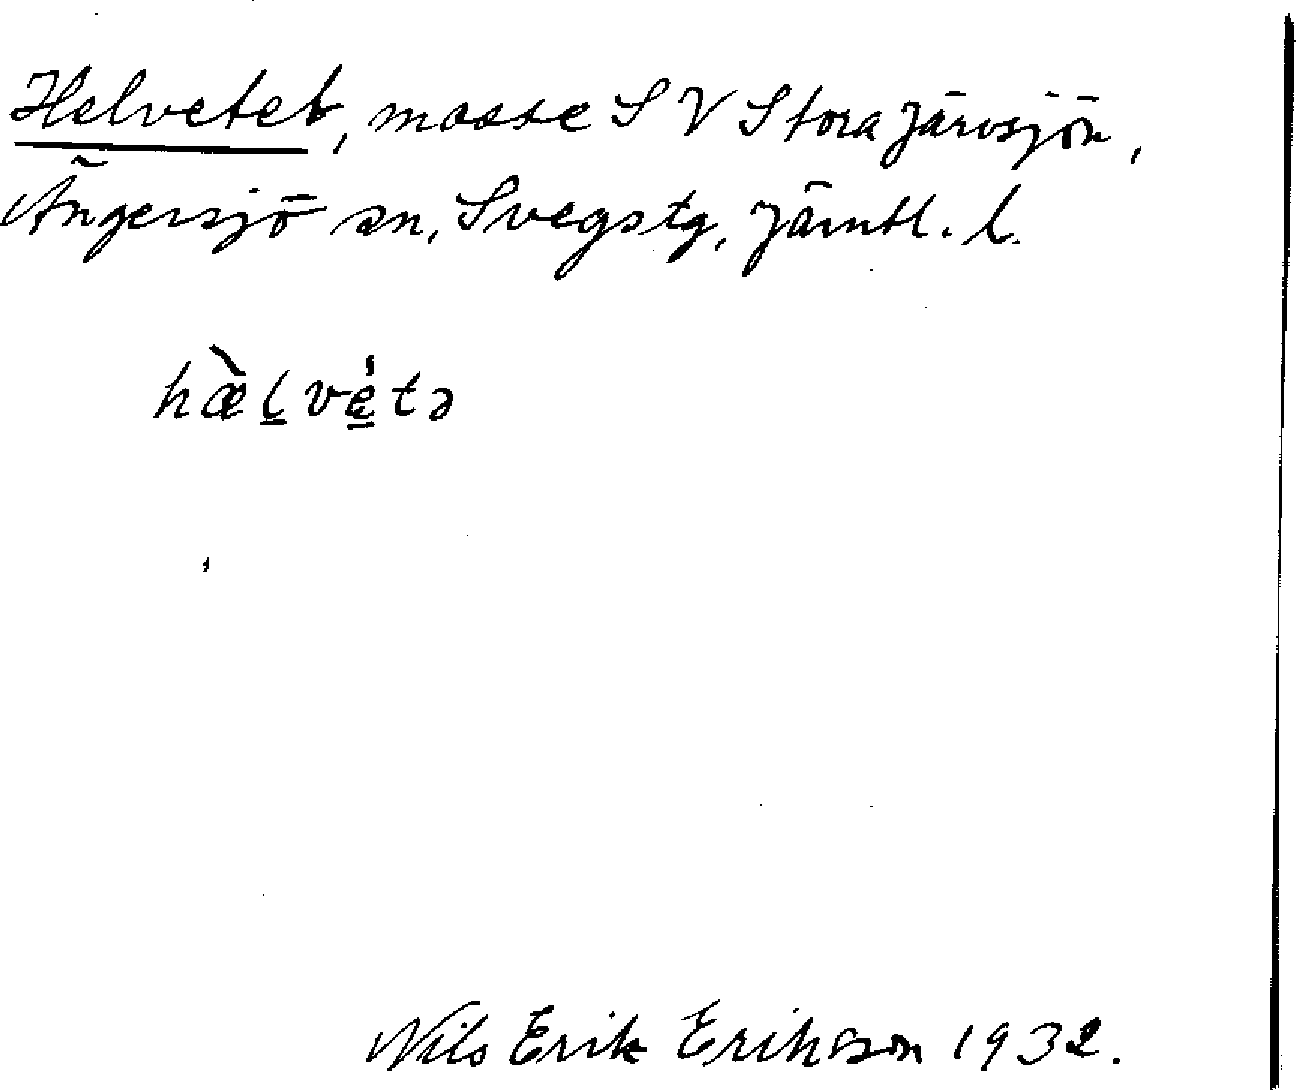 Helvetet, mosse S V Stora Järvsjön,
Ängersjö sn, Svegs tg, Jämtl. l.
hæ̀lve̍tə
Nils Erik Eriksson 1932.